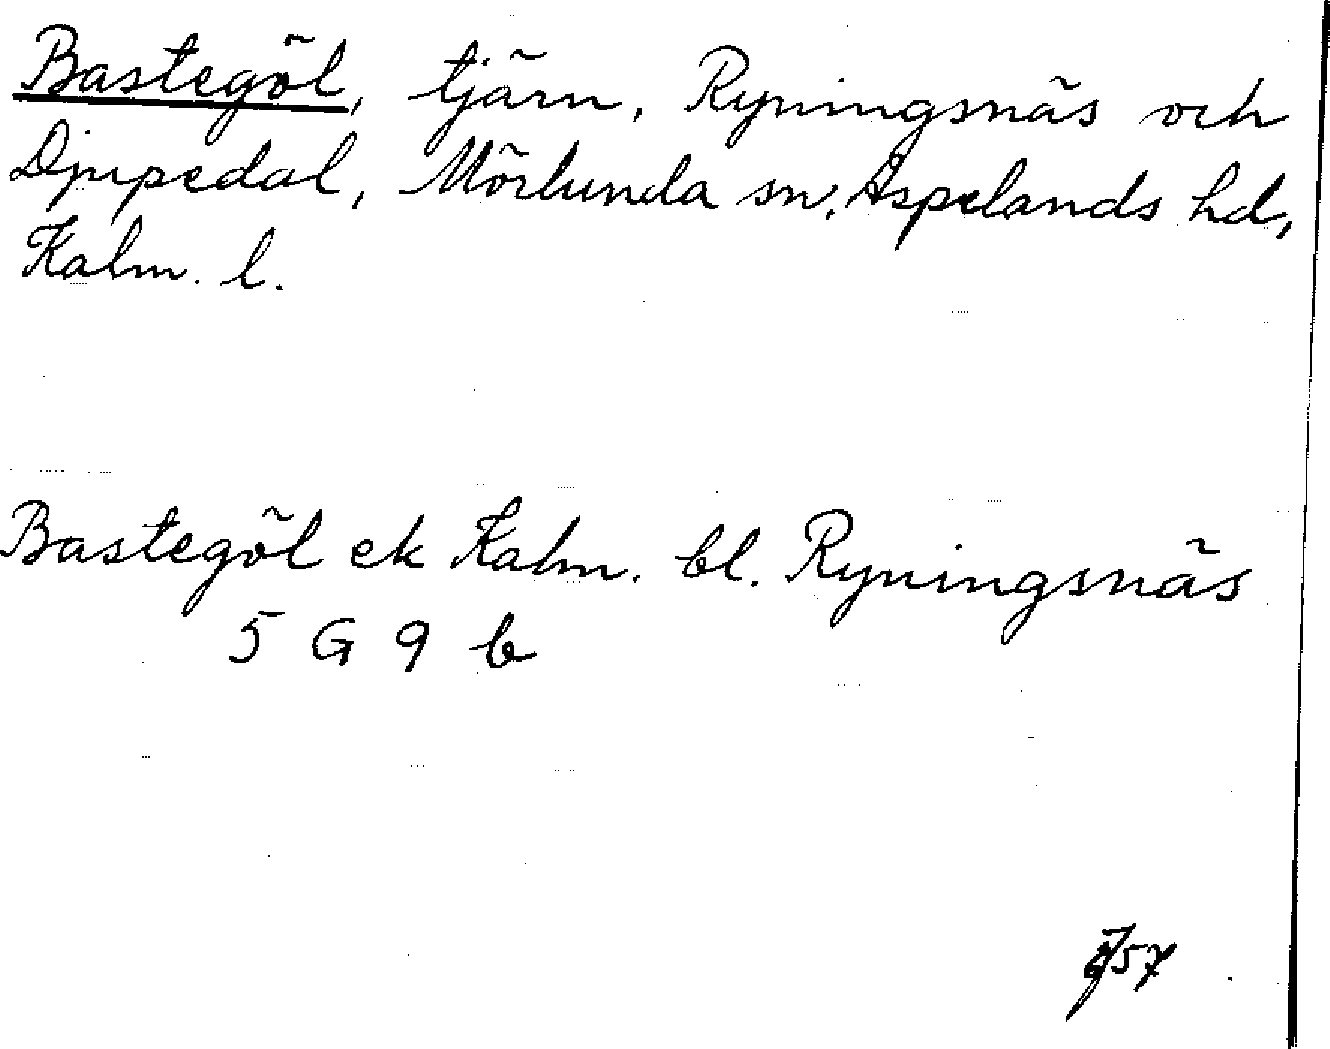 Bastegöl, tjärn, Ryningsnäs och
Djupedal, Mörlunda sn, Aspelands hd,
Kalm. l.
Bastegöl ek Kalm. bl. Ryningsnäs
5 G 9 b
57